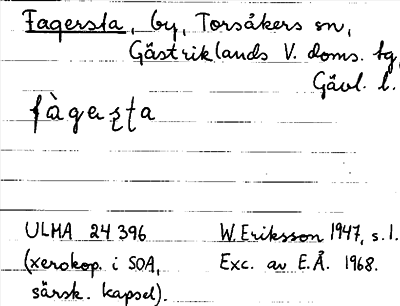 Fagersta, by, Torsåkers sn,
Gästriklands V. doms. tg,
Gävl. l.
fàgeʂʈa
ULMA 24 396
(xerokop. i SOA,
särsk. kapsel).
W. Eriksson 1947, s. 1.
Exc. av E.Å. 1968.